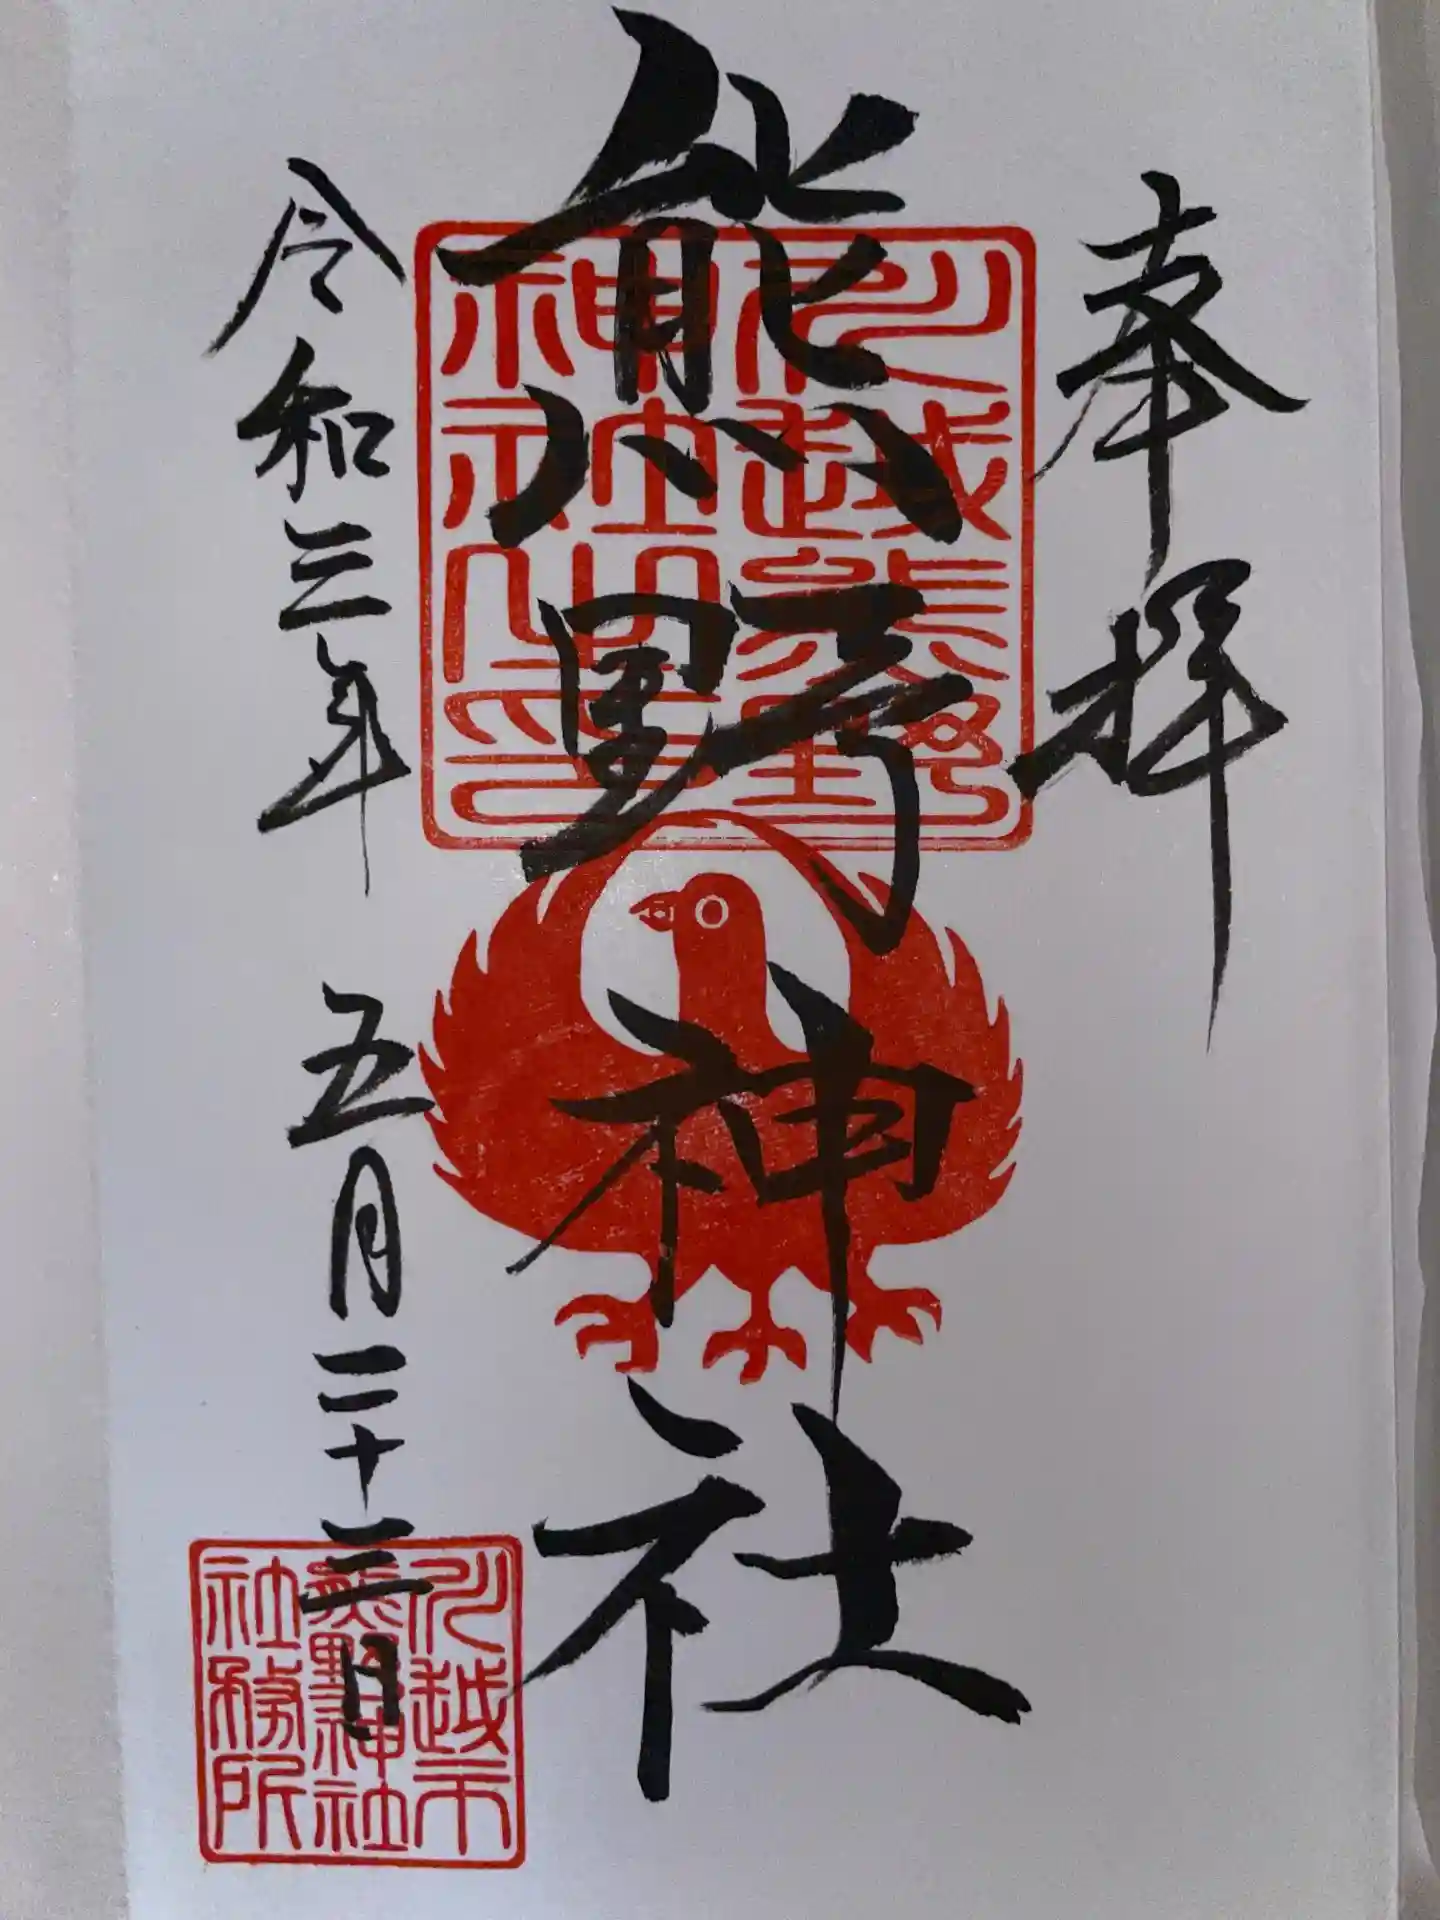 奉拝
熊野神社
川越熊野
神社之印
令和三年 五月二十三日
川越市
熊野神社
社務所